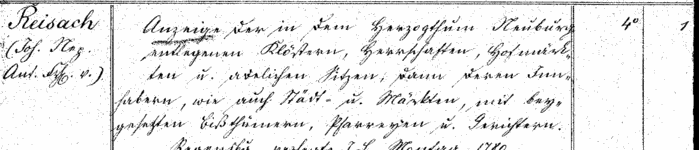 Reisach
(Joh. Nep.
Ant. Frh. v.)
Anzeige der in dem Herzogthum Neuburg
entlegenen Klöstern, Herrschaften, Hofmärk-
ten u. adelichen Sitzen; dann deren Inn-
habern, wie auch Städt- u. Märkten, mit bey-
gesetzten Bißthümern, Pfarreyen u. Gerichtern.
4°
1